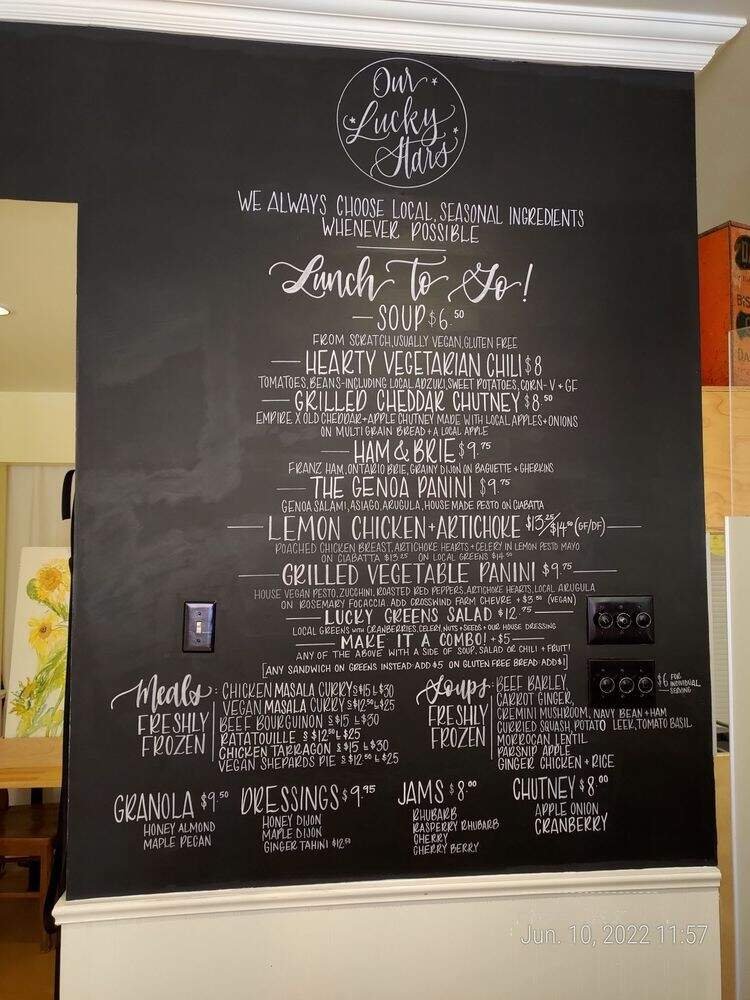 Our
Lucky
Stars
WE ALWAYS CHOOSE LOCAL, SEASONAL INGREDIENTS
WHENEVER POSSIBLE
Lunch To Go!
SOUP $6.50
FROM SCRATCH, USUALLY VEGAN, GLUTEN FREE
HEARTY VEGETARIAN CHILI $8
TOMATOES, BEANS-INCLUDING LOCAL ADZUKI, SWEET POTATOES, CORN- V + GF
GRILLED CHEDDAR CHUTNEY $8.50
EMPIRE X OLD CHEDDAR + APPLE CHUTNEY MADE WITH LOCAL APPLES + ONIONS
ON MULTI GRAIN BREAD + A LOCAL APPLE
HAM & BRIE $9.75
FRANZ HAM, ONTARIO BRIE, GRAINY DIJON ON BAGUETTE + GHERKINS
THE GENOA PANINI $9.75
GENOA SALAMI, ASIAGO, ARUGULA, HOUSE MADE PESTO ON CIABATTA
LEMON CHICKEN + ARTICHOKE $13.25/$14.50 (GF/DF)
POACHED CHICKEN BREAST, ARTICHOKE HEARTS + CELERY IN LEMON PESTO MAYO
ON CIABATTA $13.25 ON LOCAL GREENS $14.50
GRILLED VEGETABLE PANINI $9.75
HOUSE VEGAN PESTO, ZUCCHINI, ROASTED RED PEPPERS, ARTICHOKE HEARTS, LOCAL ARUGULA
ON ROSEMARY FOCACCIA. ADD CROSSWIND FARM CHEVRE + $3.50 (VEGAN)
LUCKY GREENS SALAD $12.75
LOCAL GREENS WITH CRANBERRIES, CELERY, NUTS + SEEDS + OUR HOUSE DRESSING
MAKE IT A COMBO! +$5
ANY OF THE ABOVE WITH A SIDE OF SOUP, SALAD OR CHILI + FRUIT!
[ANY SANDWICH ON GREENS INSTEAD ADD $5 ON GLUTEN FREE BREAD ADD $1]
Meals:
FRESHLY
FROZEN
CHICKEN MASALA CURRY S $15 L $30
VEGAN MASALA CURRY S $12.50 L $25
BEEF BOURGUINON S $15 L $30
RATATOUILLE S $12.50 L $25
CHICKEN TARRAGON S $15 L $30
VEGAN SHEPARDS PIE S $12.50 L $25
Soups:
FRESHLY
FROZEN
BEEF BARLEY,
CARROT GINGER,
CREMINI MUSHROOM, NAVY BEAN + HAM
CURRIED SQUASH, POTATO LEEK, TOMATO BASIL
MORROCAN LENTIL
PARSNIP APPLE
GINGER CHICKEN + RICE
$6 FOR
INDIVIDUAL
SERVING
GRANOLA $9.50
HONEY ALMOND
MAPLE PECAN
DRESSINGS $9.95
HONEY DIJON
MAPLE DIJON
GINGER TAHINI $12.50
JAMS $8.00
RHUBARB
RASPERRY RHUBARB
CHERRY
CHERRY BERRY
CHUTNEY $8.00
APPLE ONION
CRANBERRY
Jun. 10, 2022 11:57